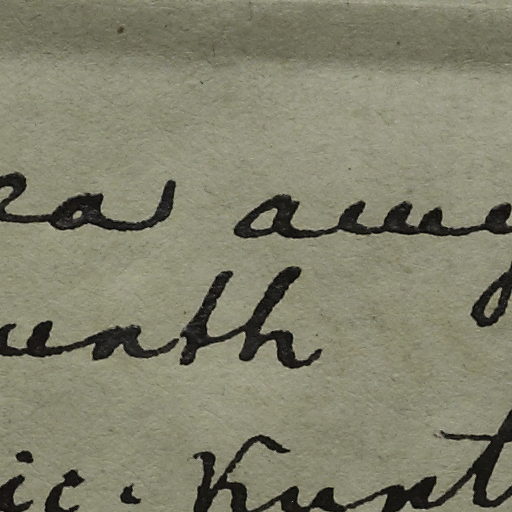 ra amy
unth
ic. Kunt